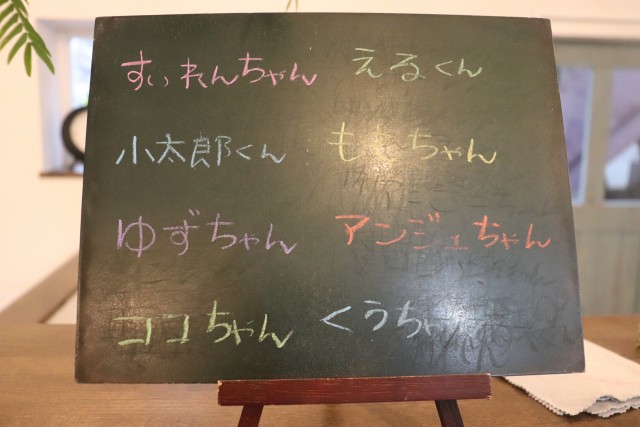 すいれんちゃん えるくん
小太郎くん ちゃん
ゆずちゃん アンジュちゃん
ココちゃん くうちゃん